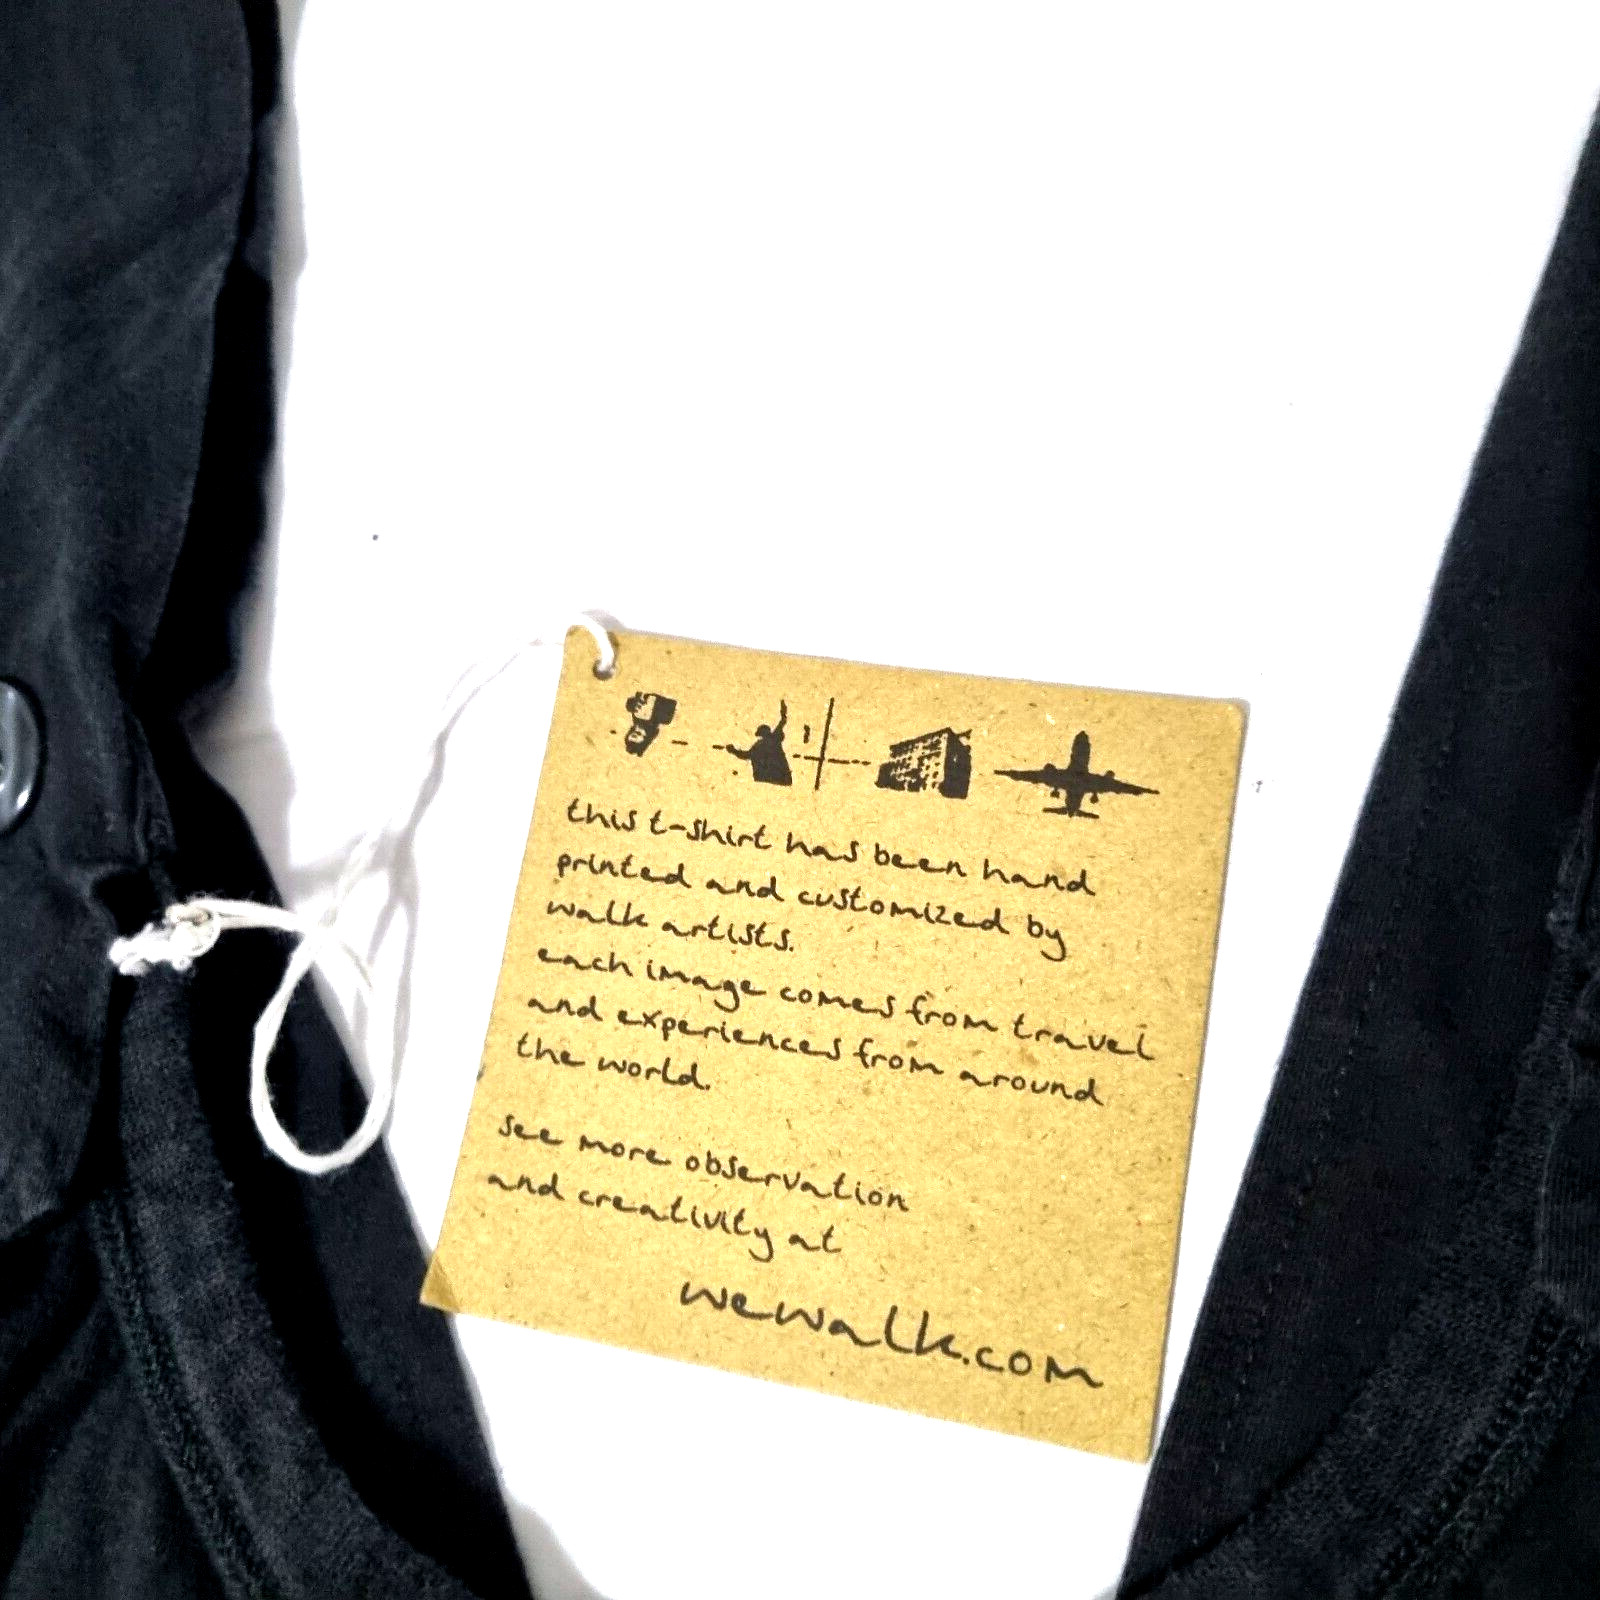 this t-shirt has been hand
printed and customized by
walk artists.
each image comes from travel
and experiences from around
the world.
see more observation
and creativity at
wewalk.com